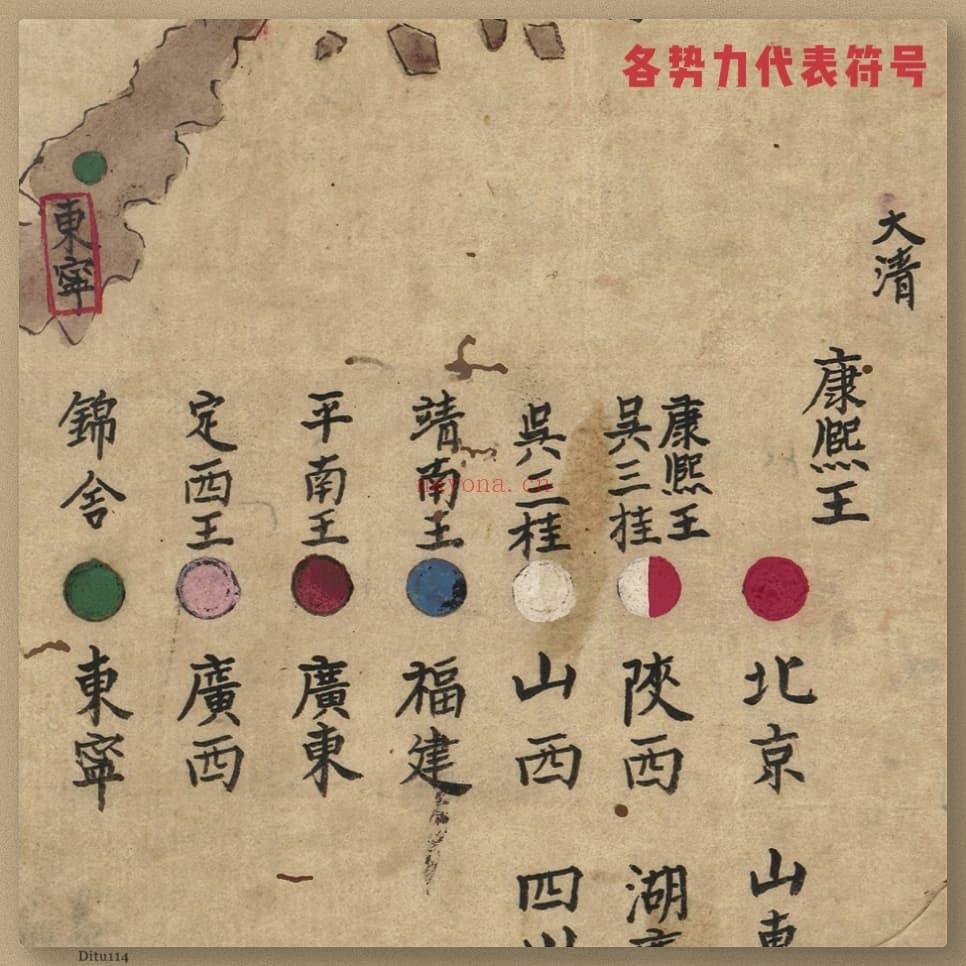 各势力代表符号
大清
康熙王
北京
山東
康熙王
吳三桂
陝西
湖廣
吳三桂
山西
四川
靖南王
福建
平南王
廣東
定西王
廣西
錦舍
東寧
東寧
nayona.cn
Ditu114